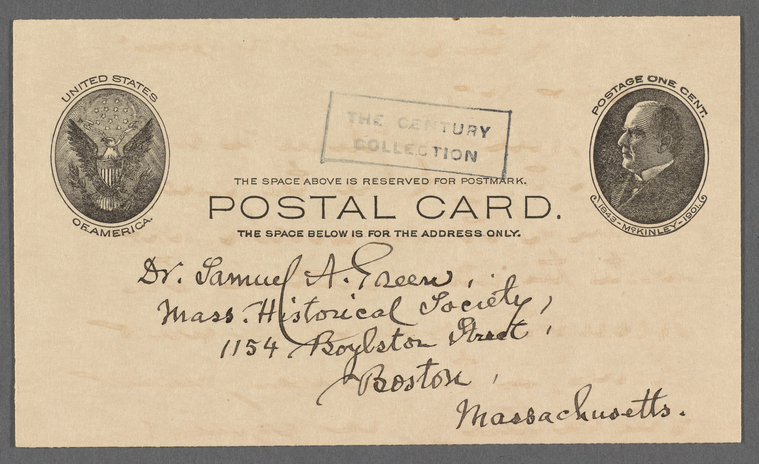 UNITED STATES
OF AMERICA.
THE CENTURY
COLLECTION
POSTAGE ONE CENT.
1843-McKINLEY-1901.
THE SPACE ABOVE IS RESERVED FOR POSTMARK.
POSTAL CARD.
THE SPACE BELOW IS FOR THE ADDRESS ONLY.
Dr. Samuel A. Green,
Mass. Historical Society,
1154 Boylston Street,
Boston,
Massachusetts.